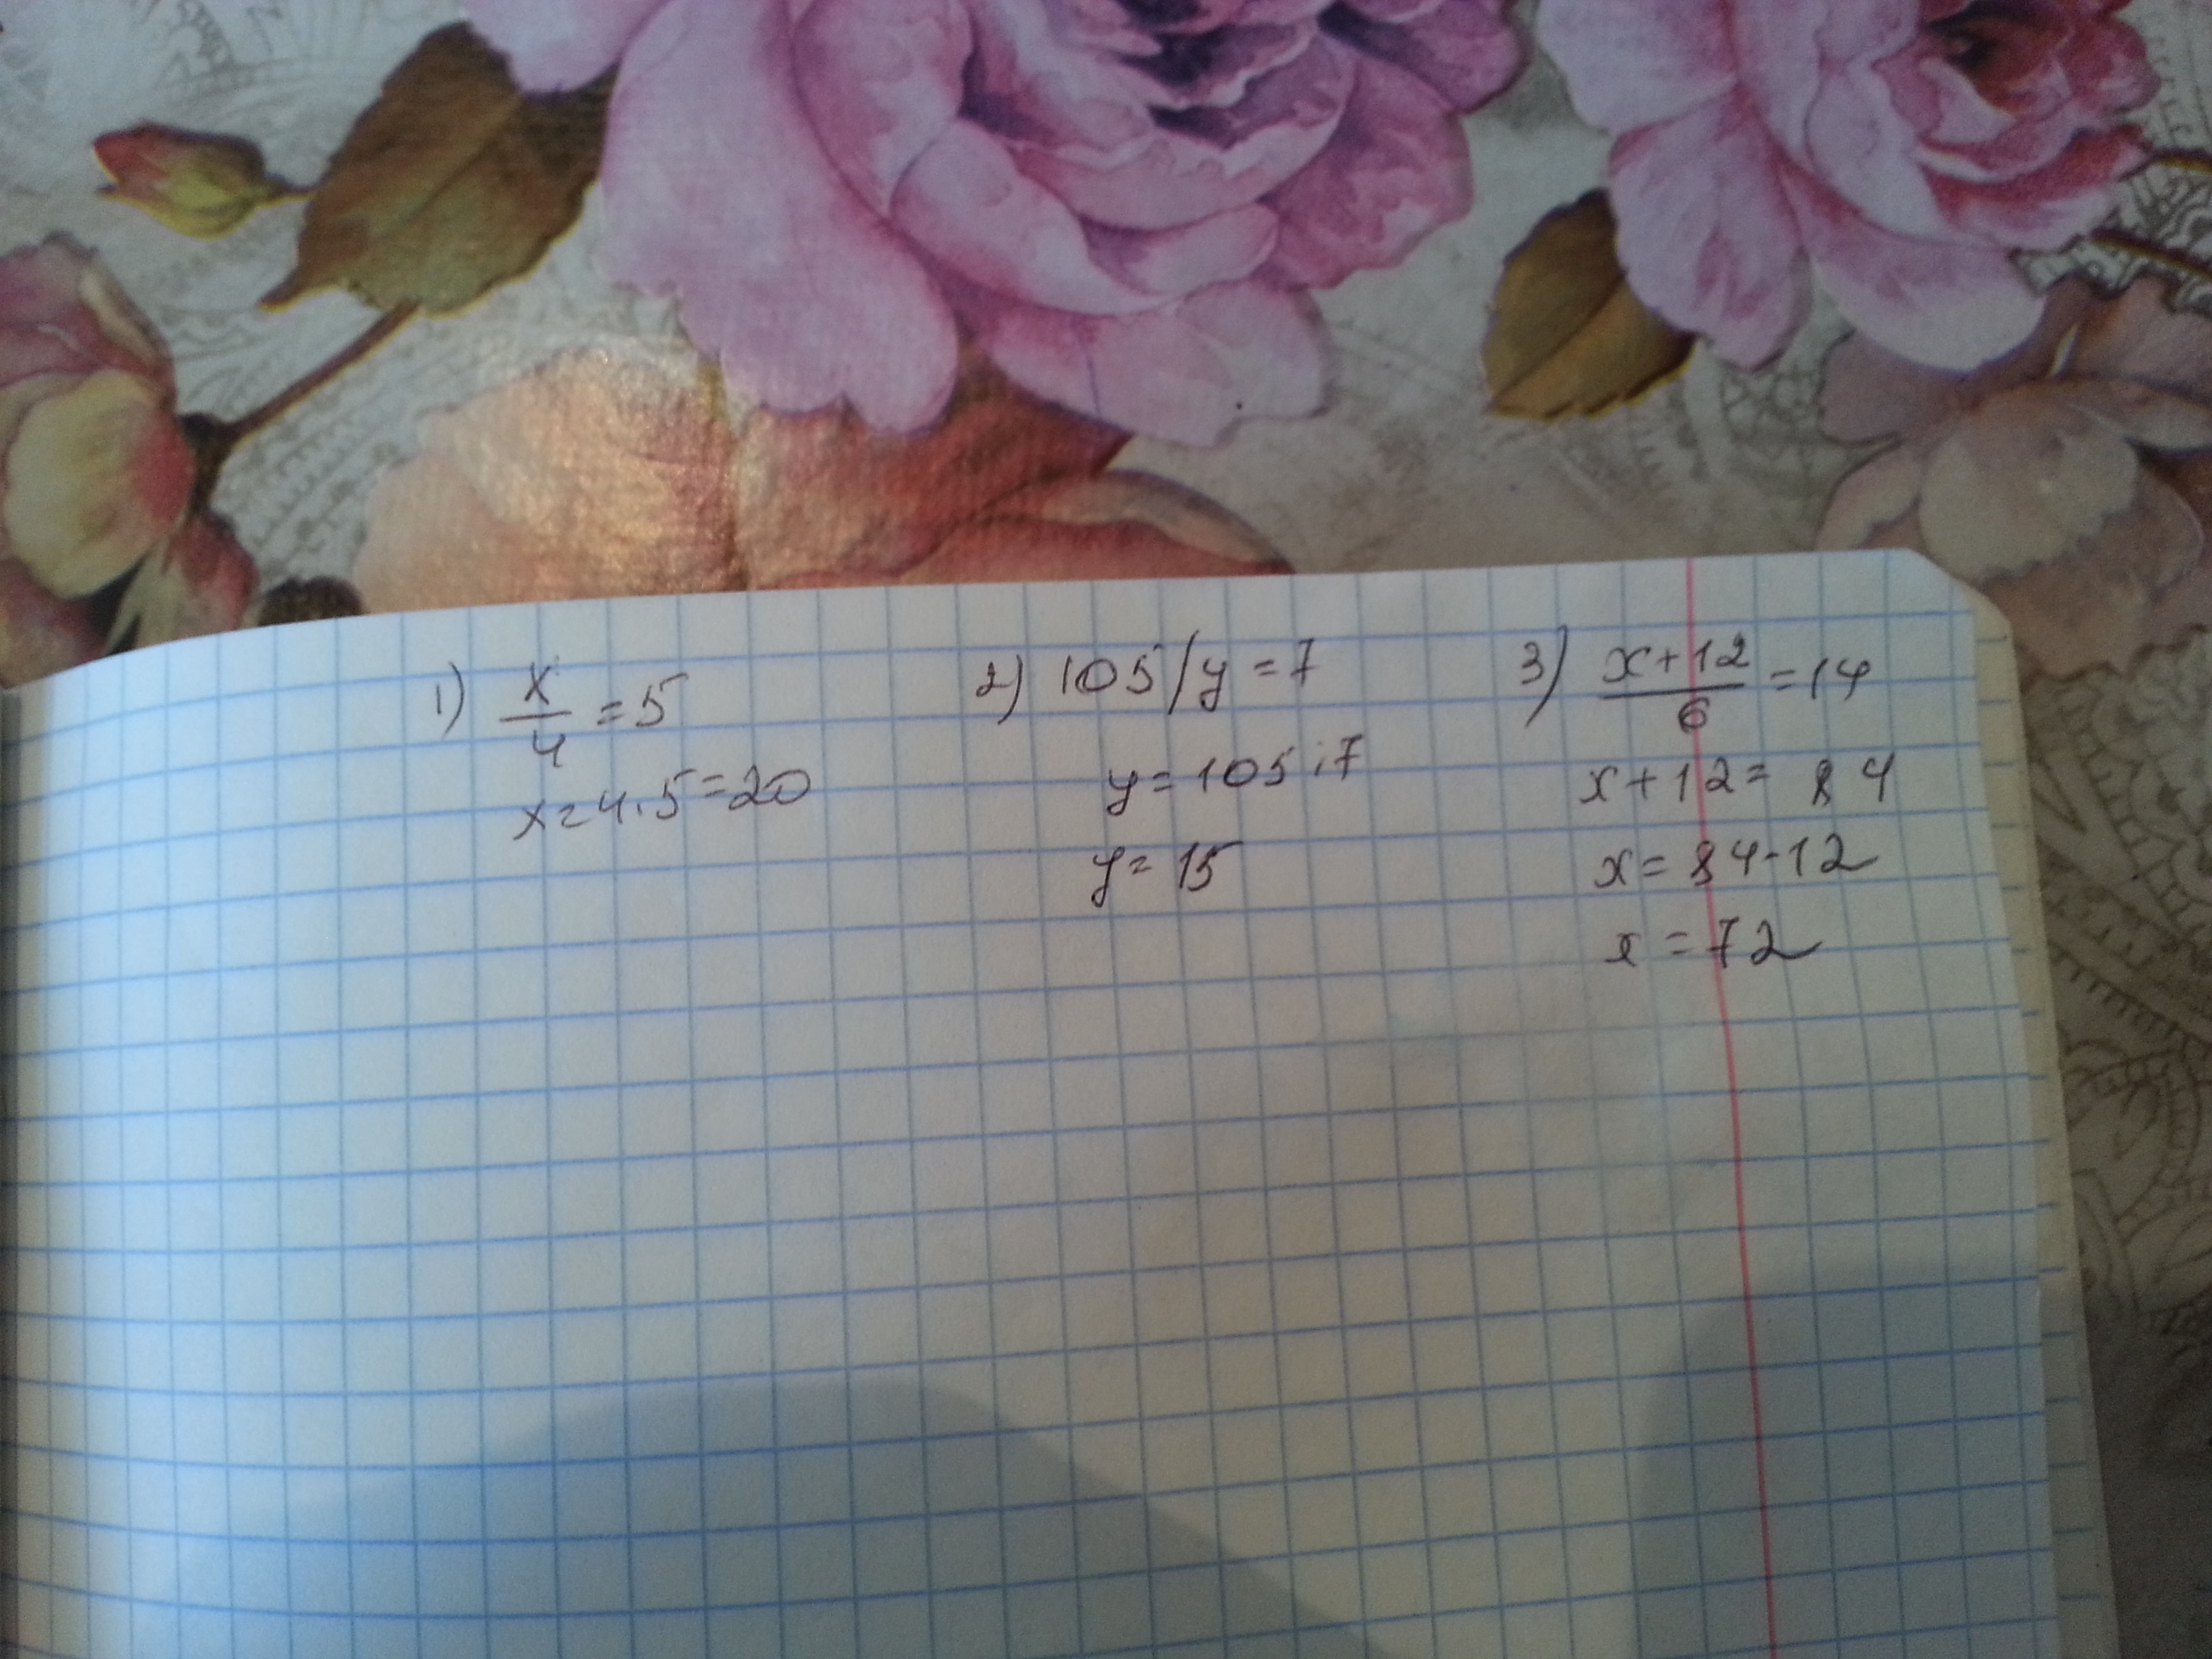 1) x/4 = 5
x = 4 · 5 = 20
2) 105/y = 7
y = 105 : 7
y = 15
3) x+12/6 = 14
x + 12 = 84
x = 84 - 12
x = 72